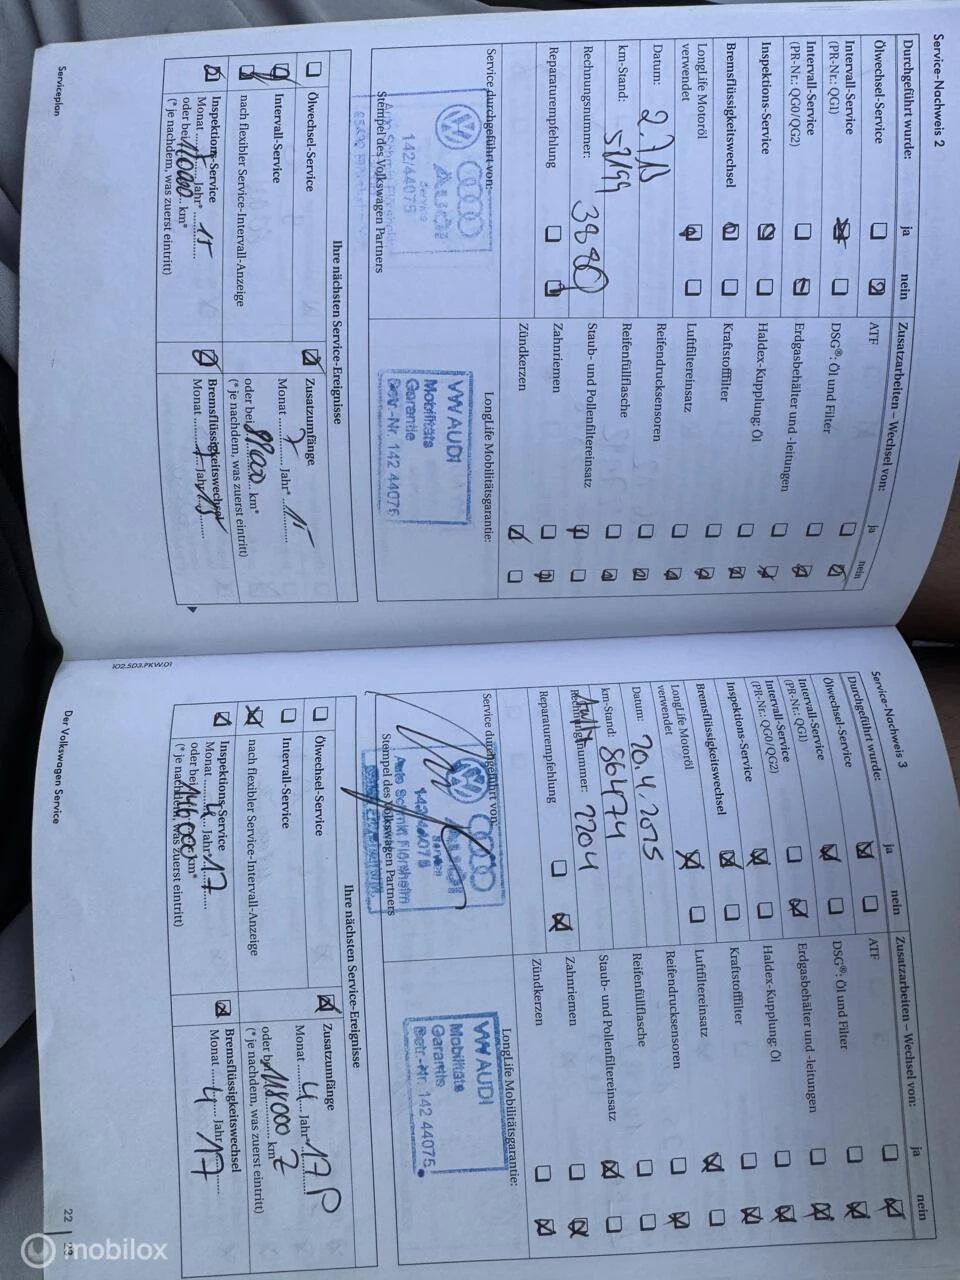 Service-Nachweis 2
Durchgeführt wurde: ja nein
Ölwechsel-Service
Intervall-Service
(PR-Nr.: QG1)
Intervall-Service
(PR-Nr.: QG0/QG2)
Inspektions-Service
Bremsflüssigkeitswechsel
LongLife Motoröl
verwendet
Datum: 2.7.13
km-Stand:
Rechnungsnummer:
Reparaturempfehlung
Service durchgeführt von:
Audi
Service
142/44075
Stempel des Volkswagen Partners
Zusatzarbeiten – Wechsel von: ja nein
ATF
DSG®: Öl und Filter
Erdgasbehälter und -leitungen
Haldex-Kupplung: Öl
Kraftstofffilter
Luftfiltereinsatz
Reifendrucksensoren
Reifenfüllflasche
Staub- und Pollenfiltereinsatz
Zahnriemen
Zündkerzen
LongLife Mobilitätsgarantie:
VW AUDI
Mobilitäts
Garantie
Betr.-Nr. 142 44075
Ihre nächsten Service-Ereignisse
Ölwechsel-Service
Intervall-Service
nach flexibler Service-Intervall-Anzeige
Inspektions-Service
Monat Jahr* 15
oder bei km*
(* je nachdem, was zuerst eintritt)
Zusatzumfänge
Monat 7 Jahr* 15
oder bei km*
(* je nachdem, was zuerst eintritt)
Bremsflüssigkeitswechsel
Monat Jahr 15
Serviceplan
Service-Nachweis 3
Durchgeführt wurde: ja nein
Ölwechsel-Service
Intervall-Service
(PR-Nr.: QG1)
Intervall-Service
(PR-Nr.: QG0/QG2)
Inspektions-Service
Bremsflüssigkeitswechsel
LongLife Motoröl
verwendet
Datum: 20.4.2015
km-Stand: 86474
Rechnungsnummer: 2204
Reparaturempfehlung
Service durchgeführt von:
Service
Auto Schmin Flörsheim
Stempel des Volkswagen Partners
Zusatzarbeiten – Wechsel von: ja nein
ATF
DSG®: Öl und Filter
Erdgasbehälter und -leitungen
Haldex-Kupplung: Öl
Kraftstofffilter
Luftfiltereinsatz
Reifendrucksensoren
Reifenfüllflasche
Staub- und Pollenfiltereinsatz
Zahnriemen
Zündkerzen
LongLife Mobilitätsgarantie:
VW AUDI
Mobilitäts
Garantie
Betr.-Nr. 142 44075
Ihre nächsten Service-Ereignisse
Ölwechsel-Service
Intervall-Service
nach flexibler Service-Intervall-Anzeige
Inspektions-Service
Monat 4 Jahr 17
oder bei 146000 km*
(* je nachdem, was zuerst eintritt)
Zusatzumfänge
Monat 4 Jahr 17 P
oder bei 118000 km
(* je nachdem, was zuerst eintritt)
Bremsflüssigkeitswechsel
Monat 4 Jahr 17
102.5D3.PKW.01
Der Volkswagen Service
22
mobilox